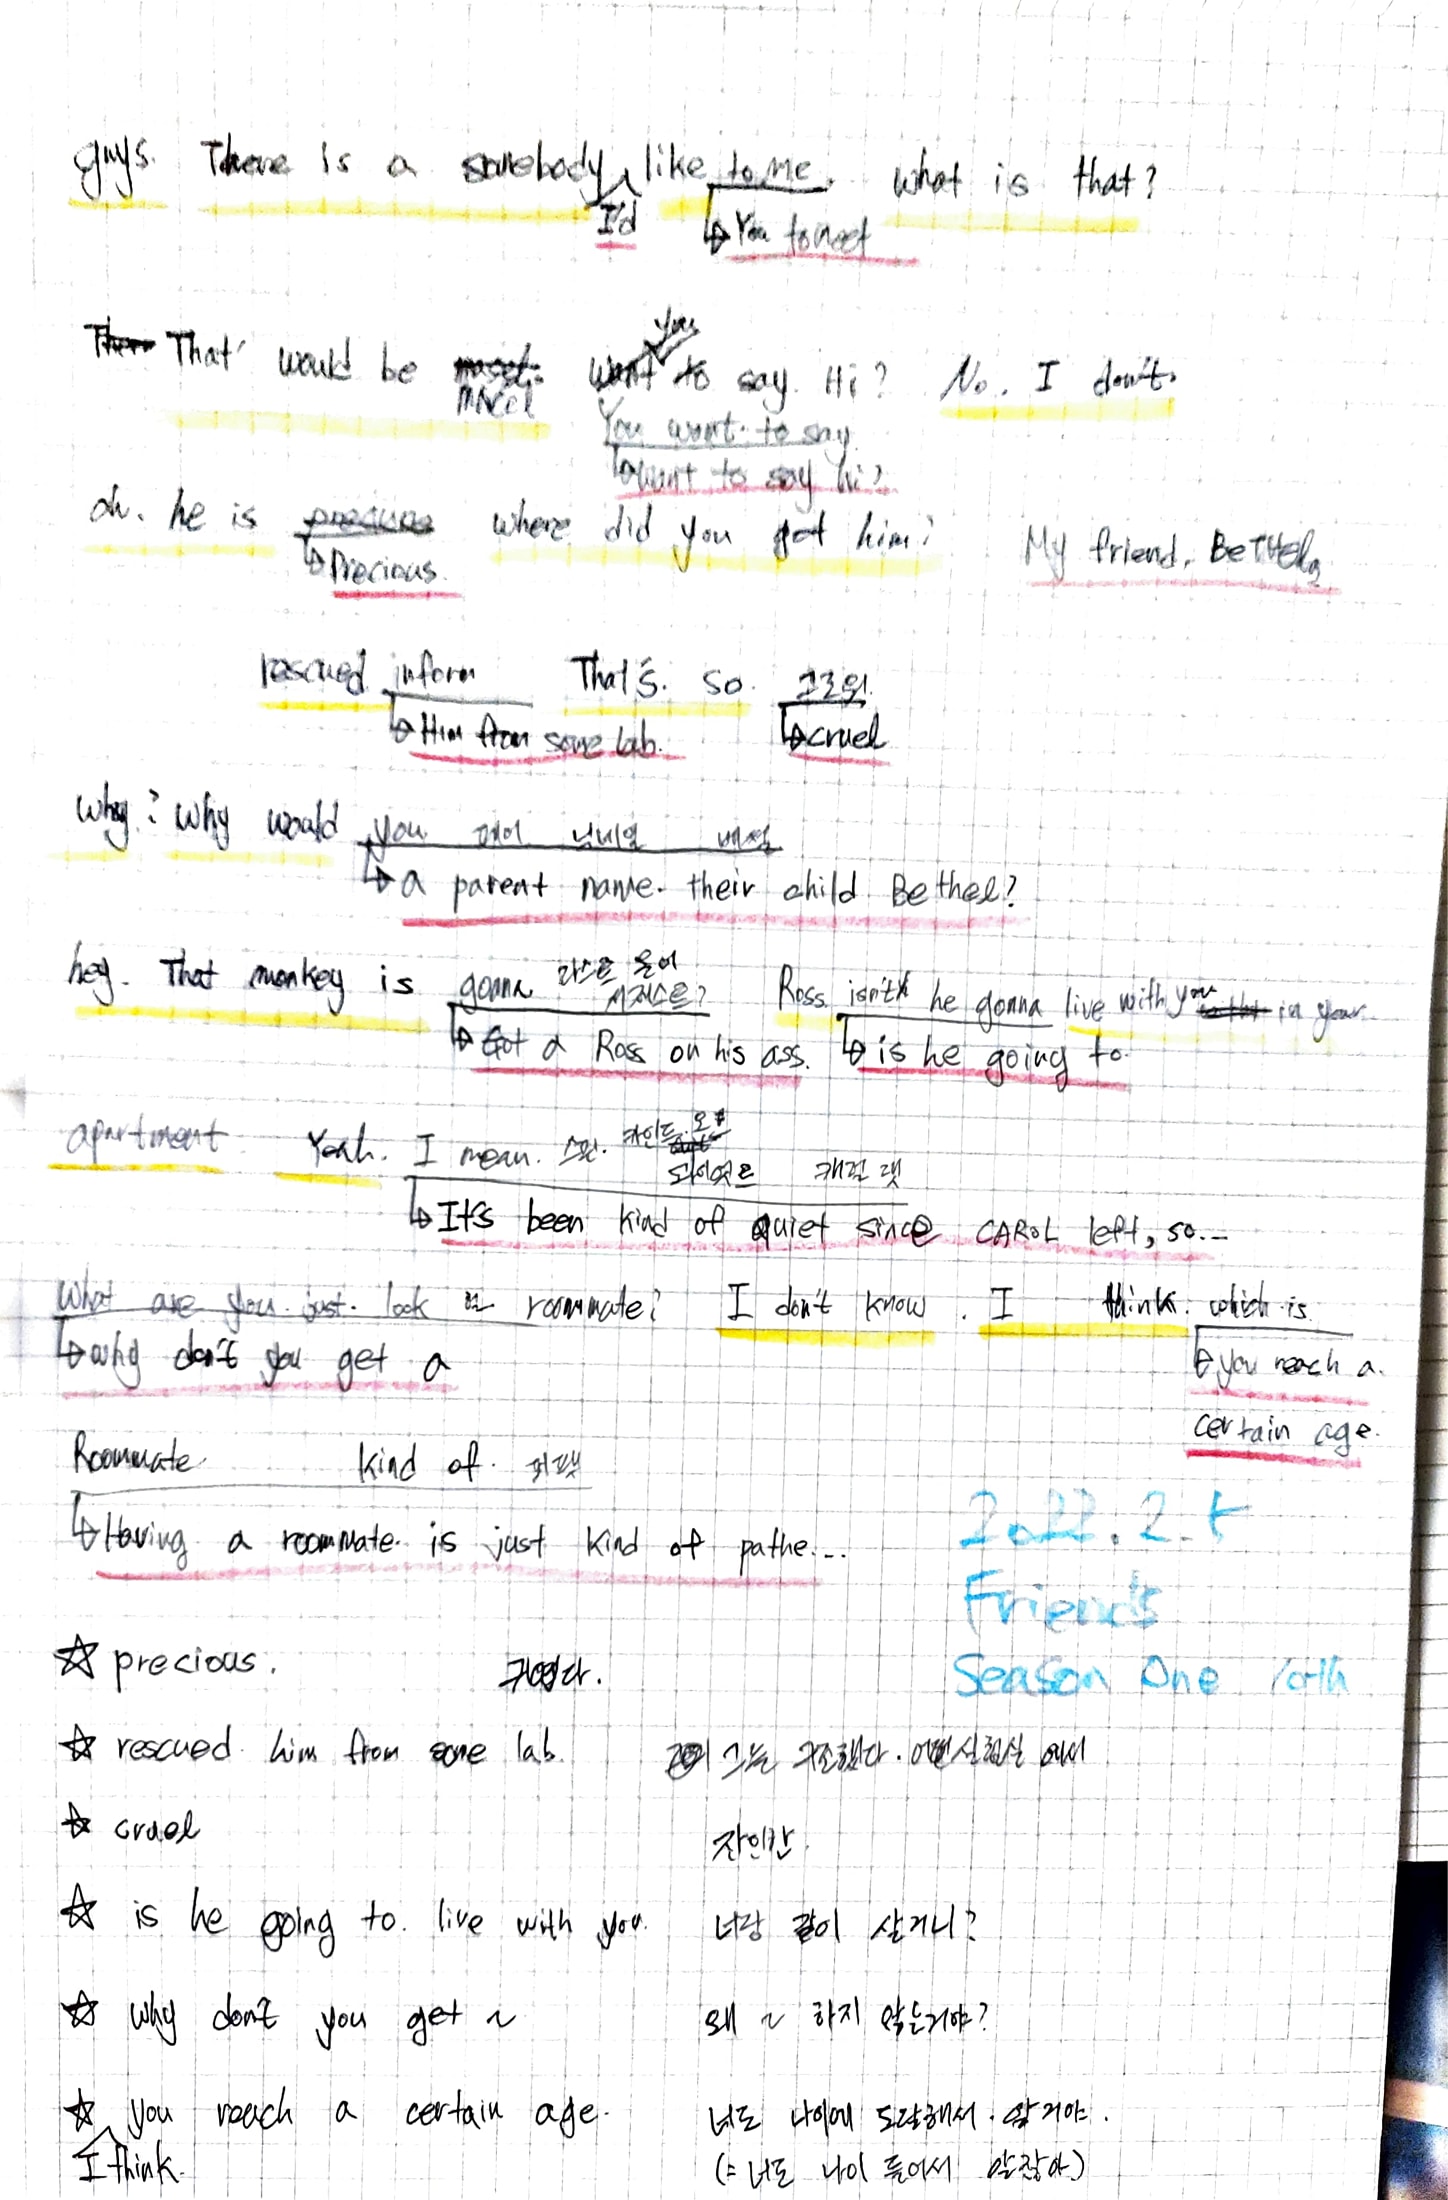 guys. There is a somebody like to me. what is that?
I'd You to meet
you
That would be Marcel want to say. Hi? No. I don't.
You want to say
want to say hi?
oh. he is where did you get him? My friend. BeTHEL
Precious.
rescued inform That's. so. 크로위.
Him from some lab. cruel
Why? Why would you. 페어 님네일 베썰
a parent name their child Bethel?
hey. That monkey is gonna 라스트 온어 Ross. isn't he gonna live with you in your
시저스트?
Got a Ross on his ass. is he going to
apartment. Yeah. I mean. 스빈. 카인드. 오브
콰이엇트 캐럴 랫
It's been kind of quiet since CAROL left, so...
What are you just. look roommate? I don't know. I think. which is.
why don't you get a you reach a.
certain age.
Roommate. kind of. 퍼땟
Having a roommate. is just kind of pathe...
2022. 2. 5
Friends
Season One 10th
☆ precious. 귀엽다.
☆ rescued him from some lab. 그는 구조했다. 어떤 실험실 에서
☆ cruel 잔인한.
☆ is he going to. live with you. 너랑 같이 살거니?
☆ why don't you get ~ 왜 ~ 하지 않는거야?
☆ you reach a certain age. 너도 나이에 도달해서. 알거야.
I think. (= 너도 나이 들어서 알잖아)